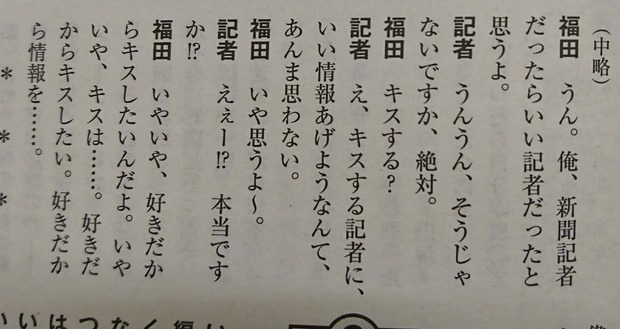 （中略）
福田　うん。俺、新聞記者
だったらいい記者だったと
思うよ。
記者　うんうん、そうじゃ
ないですか、絶対。
福田　キスする？
記者　え、キスする記者に、
いい情報あげようなんて、
あんま思わない。
福田　いや思うよ〜。
記者　えぇー!?　本当です
か!?
福田　いやいや、好きだか
らキスしたいんだよ。いや
いや、キスは……。好きだ
からキスしたい。好きだか
ら情報を……。
＊　＊　＊